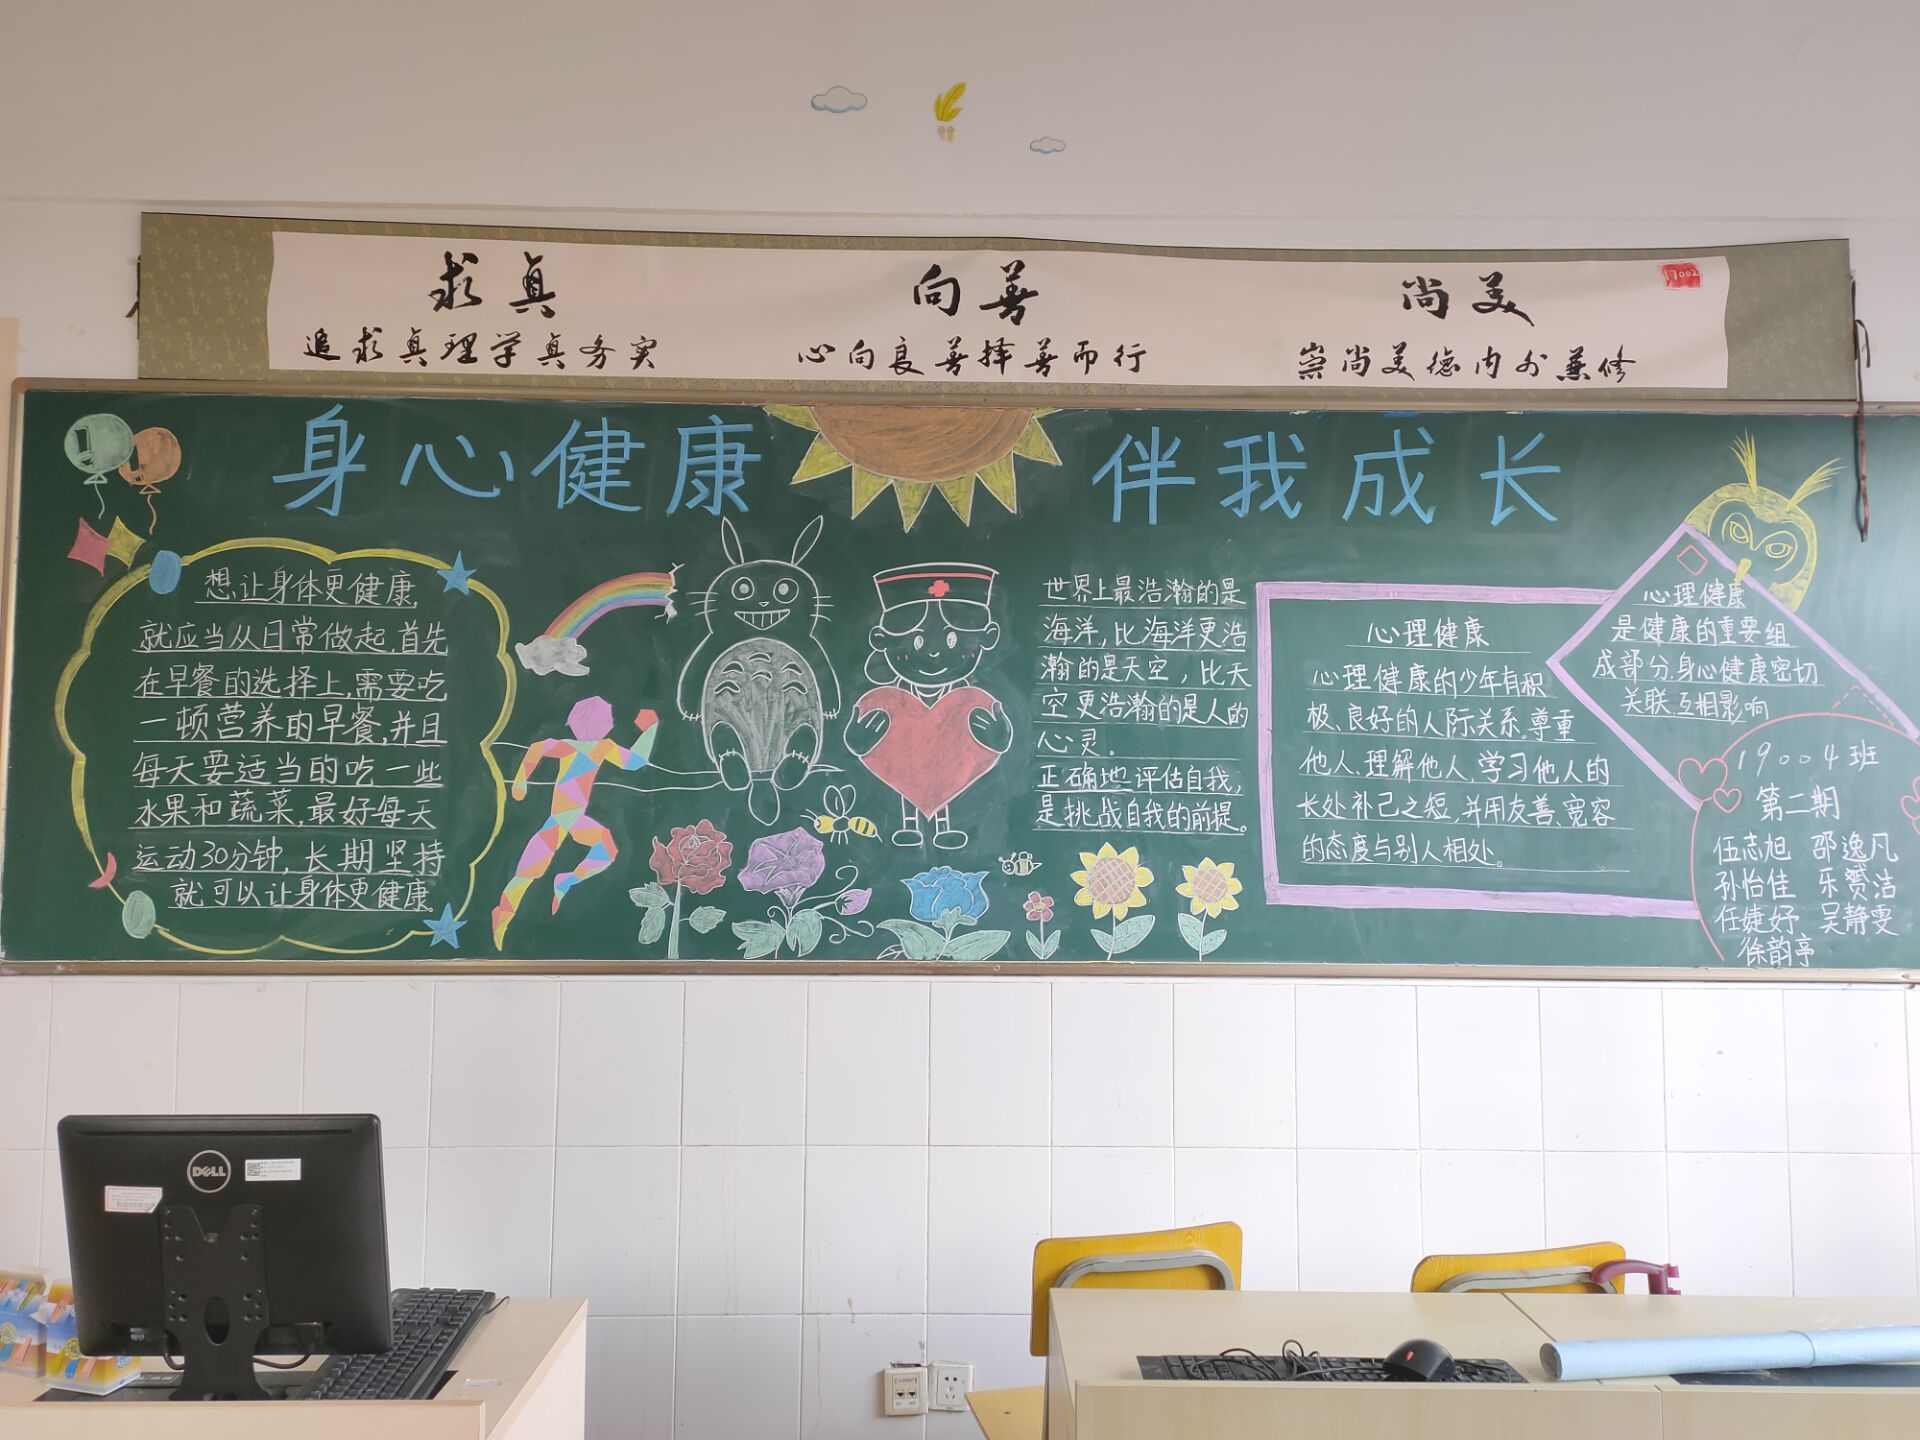 求真
追求真理学真务实
向善
心向良善择善而行
尚美
崇尚美德内外兼修
身心健康
伴我成长
想让身体更健康,
就应当从日常做起,首先
在早餐的选择上,需要吃
一顿营养的早餐,并且
每天要适当的吃一些
水果和蔬菜,最好每天
运动30分钟,长期坚持
就可以让身体更健康。
世界上最浩瀚的是
海洋,比海洋更浩
瀚的是天空,比天
空更浩瀚的是人的
心灵.
正确地评估自我,
是挑战自我的前提。
心理健康
心理健康的少年有积
极、良好的人际关系,尊重
他人、理解他人,学习他人的
长处补己之短,并用友善、宽容
的态度与别人相处。
心理健康
是健康的重要组
成部分,身心健康密切
关联,互相影响
19004班
第二期
伍志旭 邵逸凡
孙怡佳 乐赟洁
任婕妤 吴静雯
徐韵亭
DELL